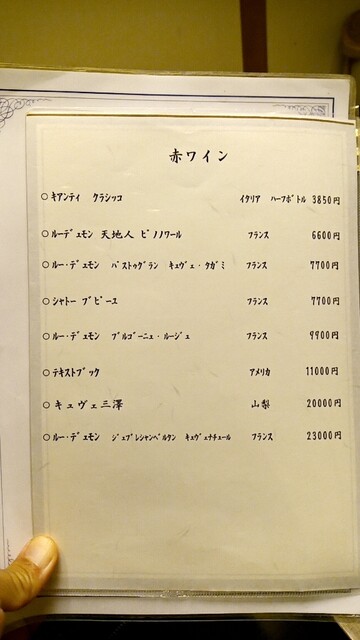 赤ワイン
○ キアンティ クラシッコ イタリア ハーフボトル 3850円
○ ルーデュモン 天地人 ピノノワール フランス 6600円
○ ルー・デュモン パストゥグラン キュヴェ・タガミ フランス 7700円
○ シャトー プピーユ フランス 7700円
○ ルー・デュモン ブルゴーニュ・ルージュ フランス 9900円
○ テキストブック アメリカ 11000円
○ キュヴェ三澤 山梨 20000円
○ ルー・デュモン ジュブレシャンベルタン キュヴェナチュール フランス 23000円